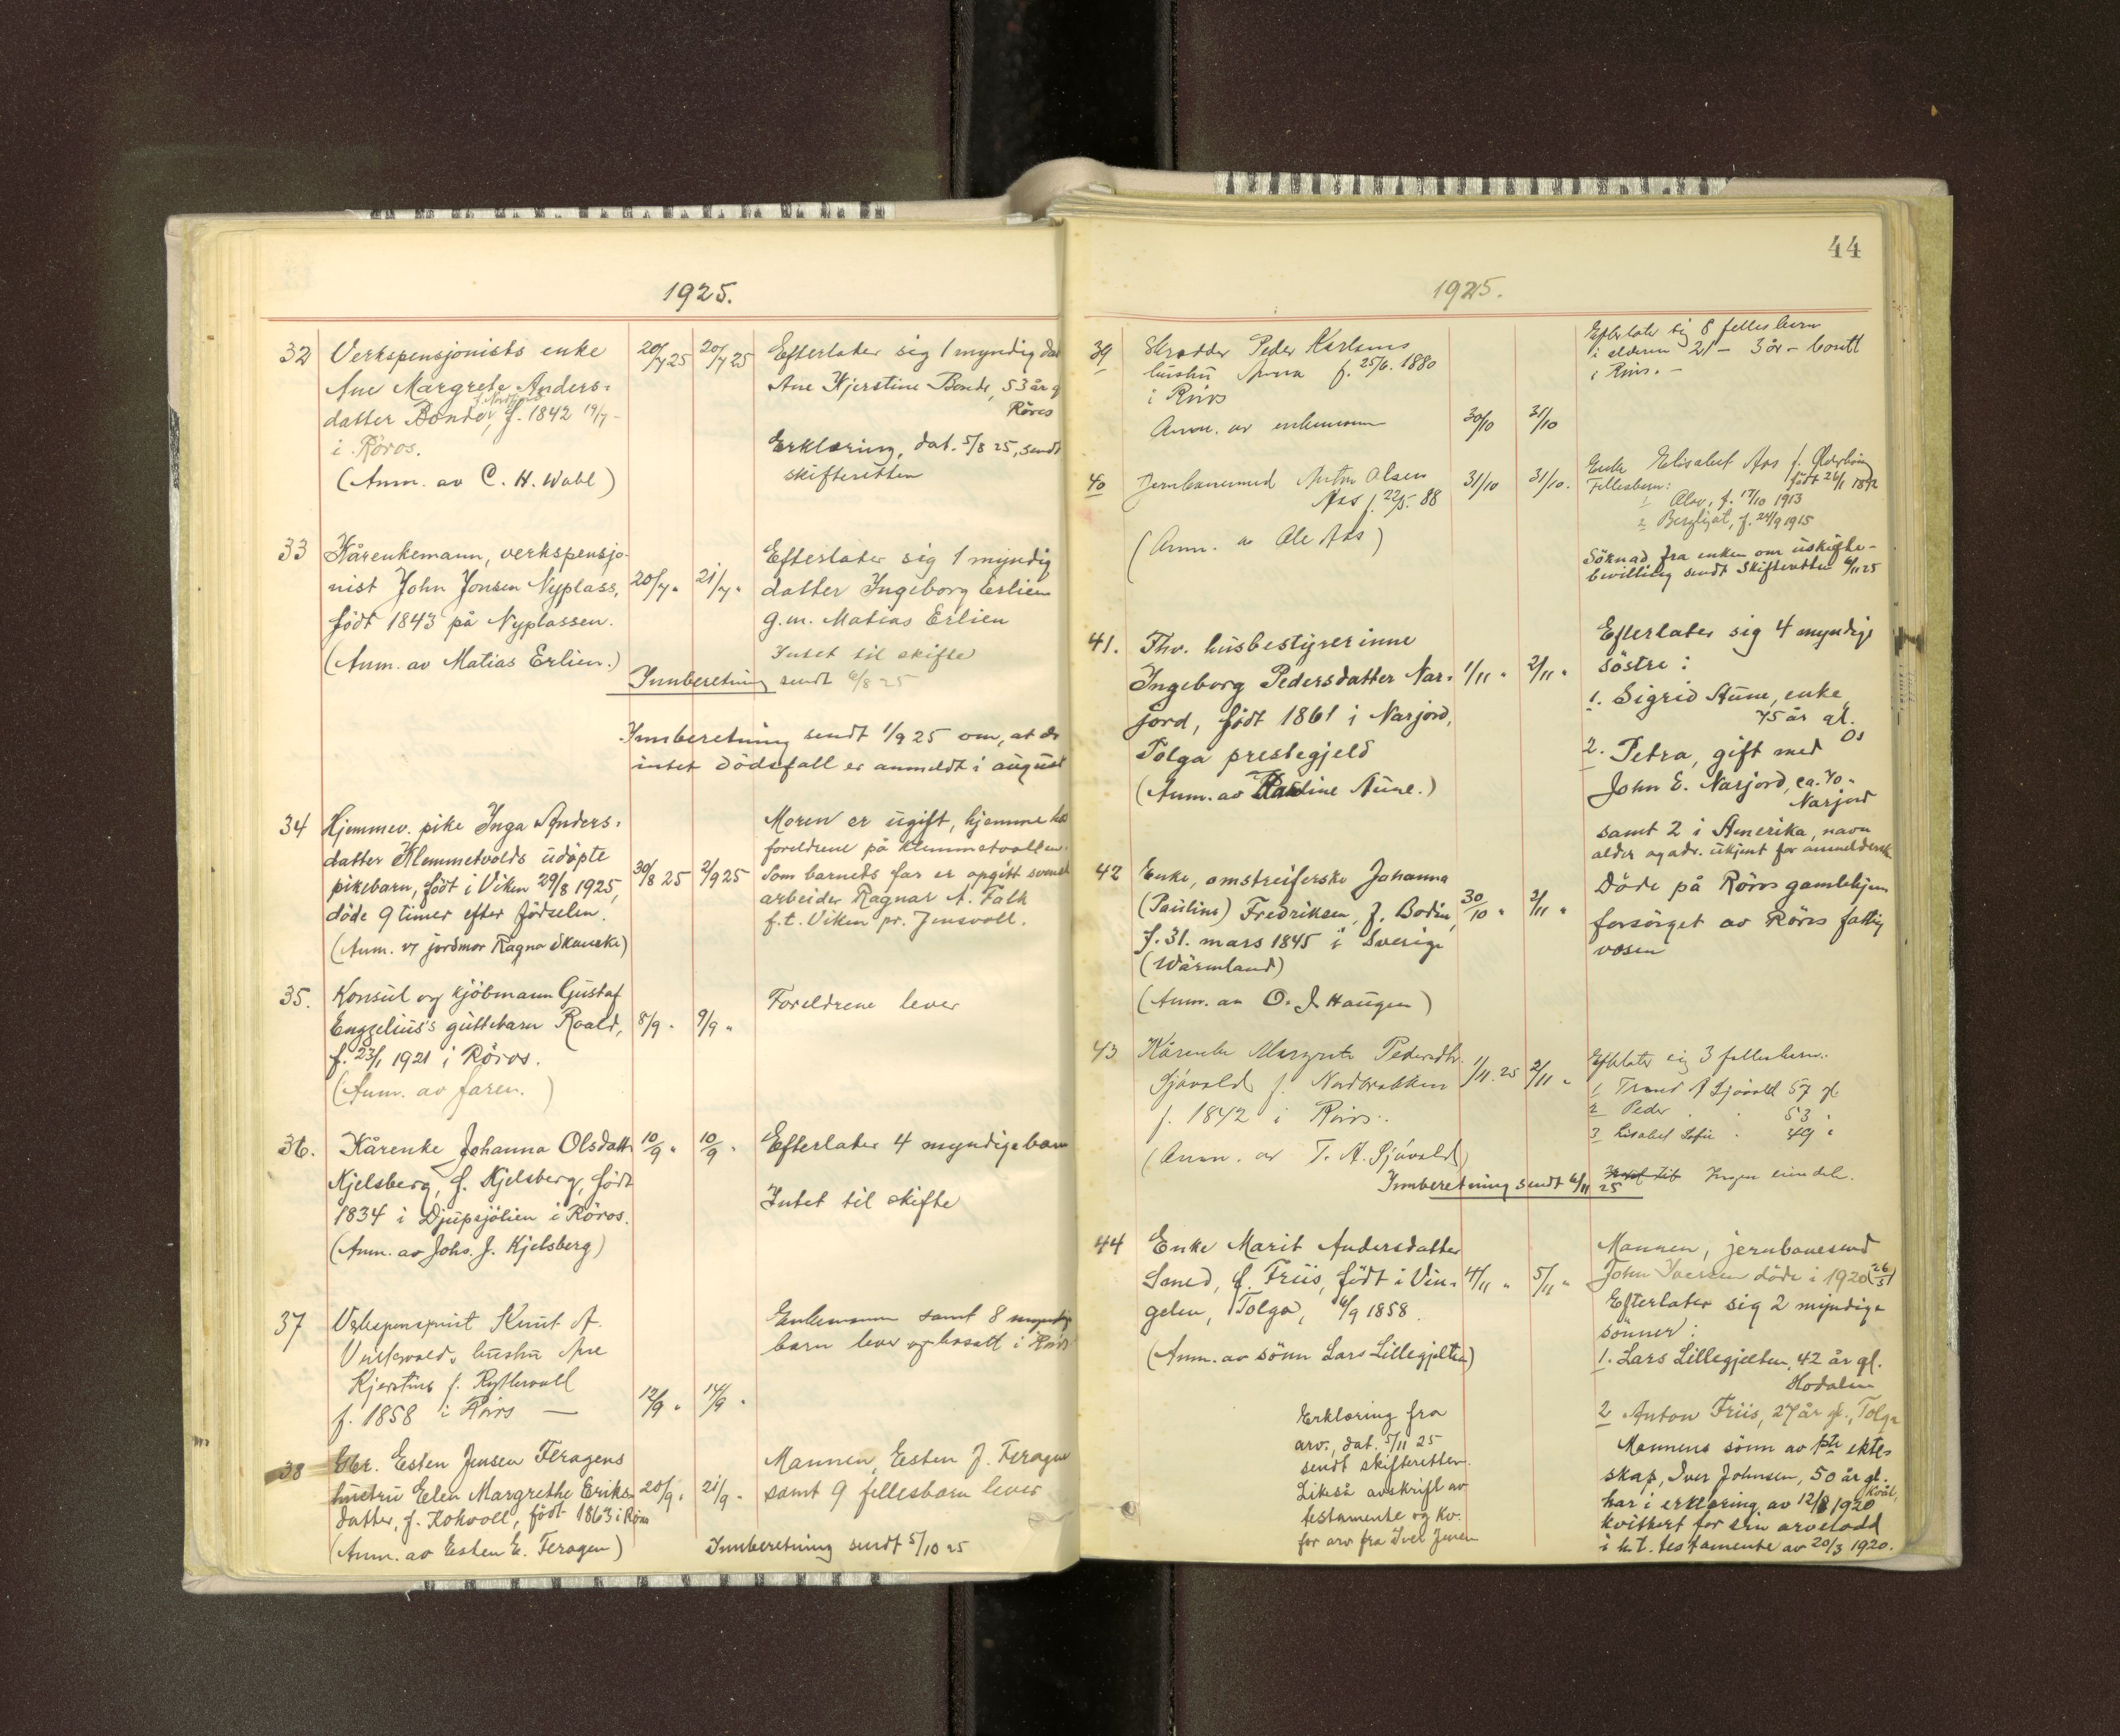 1925.
32 Verkspensjonists enke 20/7 25 20/7 25 Efterlater sig 1 myndig
Ane Margrete Anders-
Ane Kjerstine Bonde, 53 år g
datter Bonde, f. 1842 19/7
Røros
i Röros.
Erklæring, dat. 5/8 25, sendt
(Anm. av C. H. Wahl)
skifteretten
33 Kårenkemann, verkspensjo-
nist John Jonsen Nyplass, 20/7 " 21/7 "
født 1843 på Nyplassen.
(Anm. av Matias Erlien.)
Efterlater sig 1 myndig
datter Ingeborg Erlien
g.m. Matias Erlien
Intet til skifte
Innberetning sendt 6/8 25
Innberetning sendt 1/9 25 om, at
intet dødsfall er anmeldt i august
34 Hjemmev. pike Inga Anders-
datter Klemmetvolds udøpte
pikebarn, født i Viken 29/8 1925, 30/8 25 2/9 25
døde 9 timer efter fødselen.
(Anm. av jordmor Ragna Skancke)
Moren er ugift, hjemme hos
foreldrene på Klemmetvollen.
Som barnets far er opgitt svensk
arbeider Ragnar A. Falk
f.t. Viken pr. Jensvoll.
35. Konsul og kjøbmann Gustaf
Engzelius's guttebarn Roald, 8/9 " 9/9 "
f. 23/1 1921 i Röros.
(Anm. av faren.)
Foreldrene lever
36. Kårenke Johanna Olsdatt. 10/9 " 10/9 " Efterlater 4 myndige barn
Kjelsberg, f. Kjelsberg, født
1834 i Djupsjølien i Röros.
Intet til skifte
(Anm. av Johs. J. Kjelsberg)
37 Verkspensjonist Knut A.
hustru Ane
Kjerstine f.
f. 1858 i Røros — 12/9 " 14/9 "
Enkemann samt 8 myndige
barn lever og bosatt i Røros
38 Gbr. Esten Jensen Feragens
hustru Elen Margrethe Eriks- 20/9 " 21/9 "
datter, f. Kokvoll, født 1863 i Røros
(Anm. av Esten E. Feragen)
Mannen, Esten J. Feragen
samt 9 fellesbarn lever
Innberetning sendt 5/10 25
44
1925.
39 Skrædder Peder Karlsens
hustru Anna f. 25/6. 1880
i Røros
Anm. av enkemannen 30/10 31/10
Efterlater sig 8 fellesbarn
i alderen 21 - 3 år - bosatt
i Røros. -
40 Jernbanemand Anton Olsen 31/10 31/10.
Aas f. 22/5. 88
(Anm. av Ole Aas)
Enke Elisabet Aas f.
født 26/1 1892
Fellesbarn:
1 Olav, f. 17/10 1913
2 Bergljot, f. 24/9 1915
Søknad fra enken om uskifte-
bevilling sendt Skifteretten 6/11 25
41. Fhv. husbestyrerinne
Ingeborg Pedersdatter Nar- 1/11 " 2/11 "
jord, født 1861 i Narjord,
Tolga prestegjeld
(Anm. av Pauline Aune.)
Efterlater sig 4 myndige
søstre:
1. Sigrid Aune, enke
75 år gl.
Os
2. Petra, gift med
John E. Narjord, ca. 70 "
Narjord
samt 2 i Amerika, navn
alder og adr. ukjent for anmeldersk
42 Enke, omstreiferske Johanna
(Pauline) Fredriksen, f. Bodin, 30/10 " 2/11 "
f. 31. mars 1845 i Sverige
(Wärmland)
(Anm. av O. J. Haugen)
Døde på Røros gamlehjem
forsørget av Röros fattig
vesen
43 Kårenke Margrete Pedersdtr.
Sjövold f. 1/11. 25 2/11 "
f. 1842 i Røros.
(Anm. av T. A. Sjövold)
Efterlater sig 3 fellesbarn.
1 Trond A Sjövold 57 gl.
2 Peder " " 53 "
3 Lisabet Sofie " 49 "
Ingen eiendele.
Innberetning sendt 6/11 25
44 Enke Marit Andersdatter
Saned, f. Friis, født i Vin- 4/11 " 5/11 "
gelen, Tolga, 6/9 1858.
(Anm. av sønn Lars Lillegjelten)
Mannen, jernbanesmed
John Iversen døde i 1920 (26/5)
Efterlater sig 2 myndige
sønner:
1. Lars Lillegjelten, 42 år gl.
Hodalen
2 Anton Friis, 27 år gl., Tolga
Mannens sønn av 1ste ekte-
skap, Iver Johnsen, 50 år gl.
Kvål,
har i erklæring av 12/8 1920
kvittert for sin arvelodd
i h.t. testamente av 20/3 1920.
Erklæring fra
arv., dat. 5/11 25
sendt skifteretten.
Likeså avskrift av
testamente og kv.
for arv fra Iver Jensen